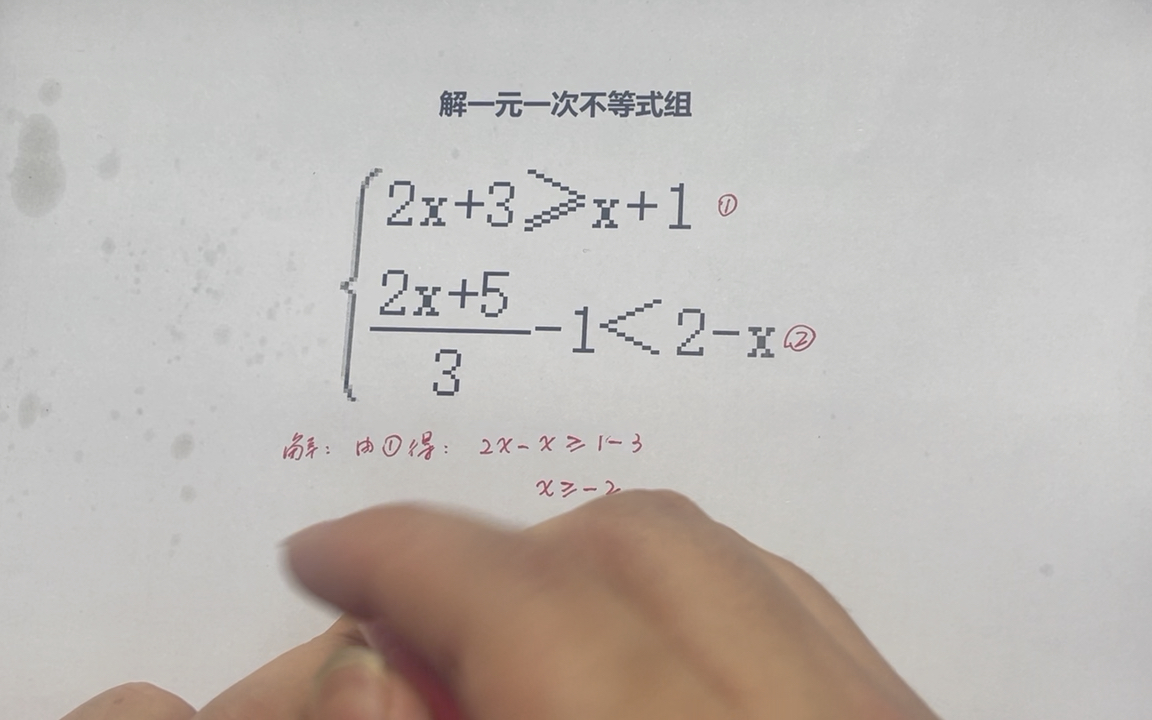 解一元一次不等式组
2x+3⩾x+1 ①
2x+5
3
-1<2-x ②
解：由①得：2x-x≥1-3
x≥-2